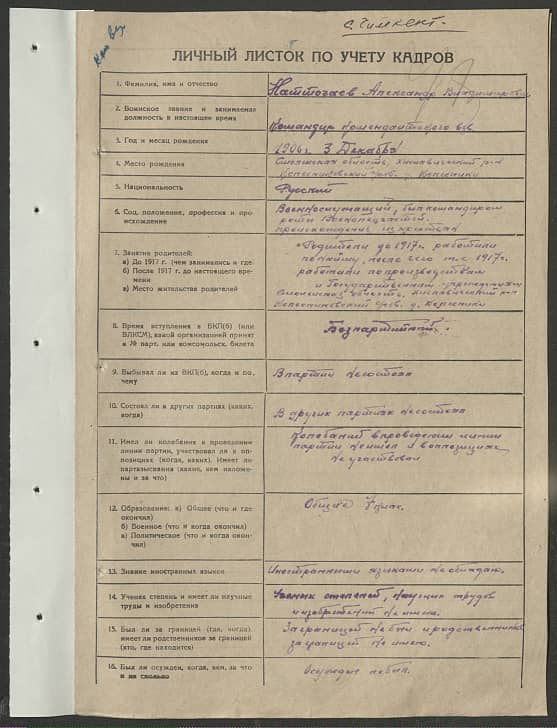 г. Чимкент.
ЛИЧНЫЙ ЛИСТОК ПО УЧЕТУ КАДРОВ
1. Фамилия, имя и отчество
Александр Владимирович
2. Воинское звание и занимаемая
должность в настоящее время
Командир комендантского
3. Год и месяц рождения
1906 г. 3 Декабря
4. Место рождения
Смоленская область, Хиславический р-н
5. Национальность
Русский
6. Соц. положение, профессия и про-
исхождение
Военнослужащий, был командиром
роты
происхождение из крестьян
7. Занятие родителей:
а) До 1917 г. (чем занимались и где)
б) После 1917 г. до настоящего вре-
мени
в) Место жительства родителей
Родители до 1917 г. работали
по найму, после его т.е. 1917 г.
работали по производствам
и Государственным учреждениям
Смоленская область, Хиславический р-н
8. Время вступления в ВКП(б) (или
ВЛКСМ), какой организацией принят
и № парт. или комсомольск. билета
Безпартийный.
9. Выбывал ли из ВКП(б), когда и по-
чему
В партии не состоял
10. Состоял ли в других партиях (каких,
когда)
В других партиях не состоял
11. Имел ли колебания в проведении
линии партии, участвовал ли в оп-
позициях (когда, каких). Имеет ли
партвзыскания (какие, кем наложе-
ны и за что)
Колебаний в проведении линии
партии не имел и в оппозициях
не участвовал
12. Образование: а) Общее (что и где
окончил)
б) Военное (что и когда окончил)
в) Политическое (что и когда окон-
чил)
Общее клас.
13. Знание иностранных языков
Иностранными языками не обладаю.
14. Ученая степень и имеет ли научные
труды и изобретения
Ученых степеней, научных трудов
и изобретений не имею.
15. Был ли за границей (где, когда)
имеет ли родственников за границей
(кто, где находится)
За границей не был и родственников
за границей не имею.
16. Был ли осужден, когда, кем, за что
и на сколько
Осужден не был.